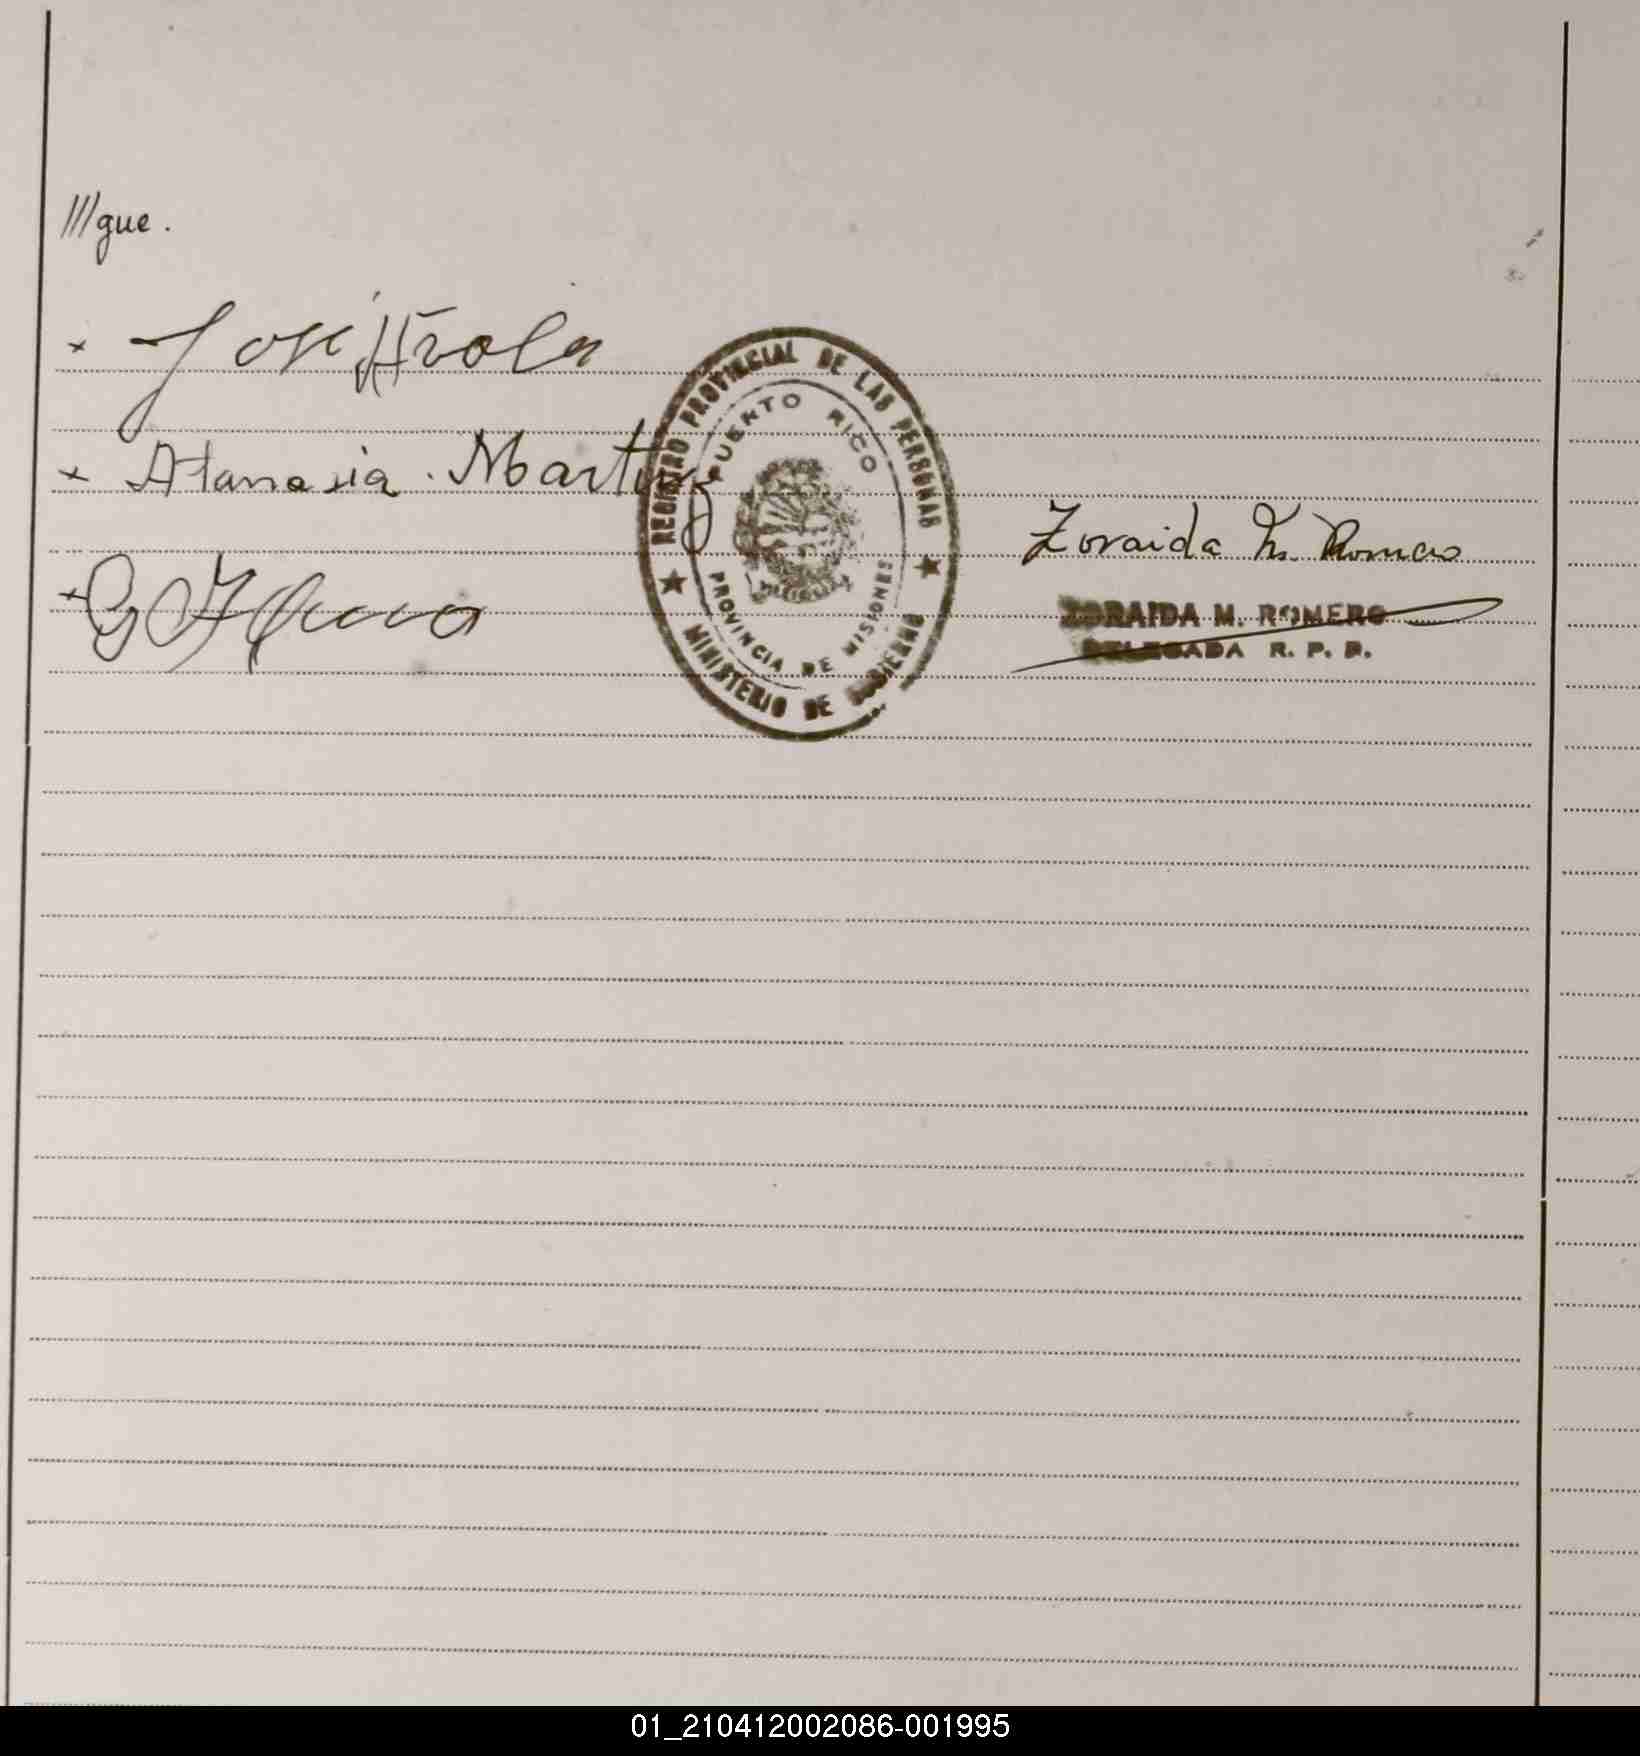 ///gue.
Atanasia Martinez
REGISTRO PROVINCIAL DE LAS PERSONAS
PUERTO RICO
PROVINCIA DE MISIONES
MINISTERIO DE GOBIERNO
Zoraida M. Romero
ZORAIDA M. ROMERO
DELEGADA R. P. P.
x José
01_210412002086-001995